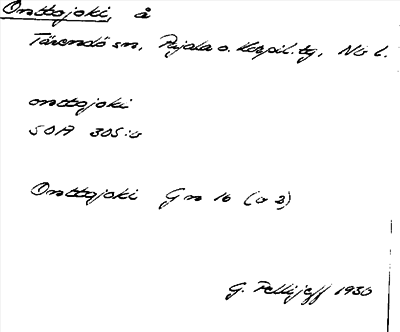 Onttojoki, å
Tärendö sn, Pajala o. Korpil. tg, Nb l.
onttojoki
SOA 305:4
Onttojoki Gn 16 (a 3)
G. Pellijeff 1950